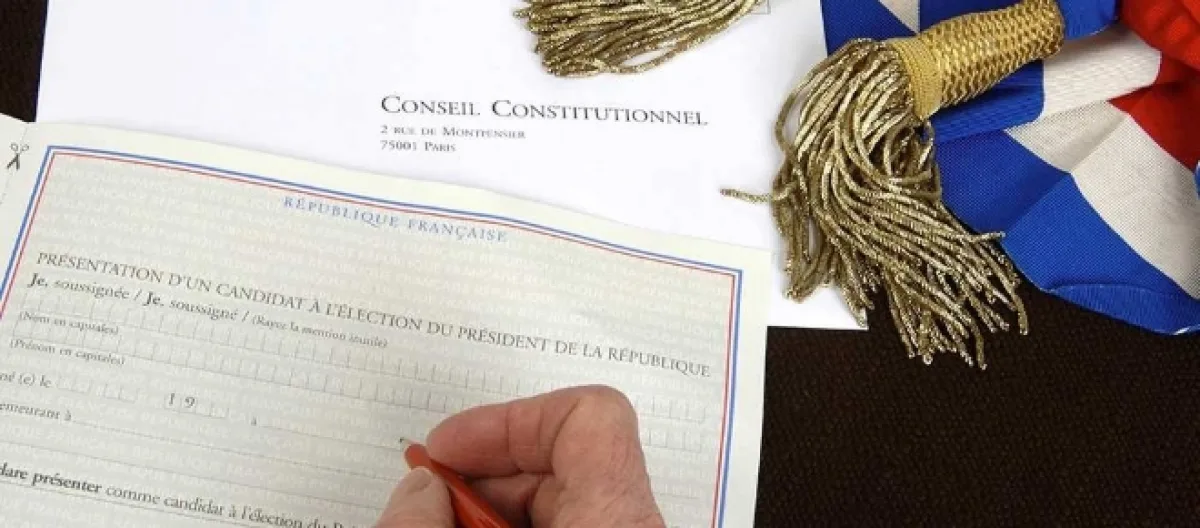 CONSEIL CONSTITUTIONNEL
2 RUE DE MONTPENSIER
75001 PARIS
RÉPUBLIQUE FRANÇAISE
PRÉSENTATION D'UN CANDIDAT À L'ÉLECTION DU PRÉSIDENT DE LA RÉPUBLIQUE
Je, soussignée / Je, soussigné / (Rayez la mention inutile)
(Nom en capitales)
(Prénom en capitales)
né (e) le 19 à
emeurant à
lare présenter comme candidat à l'élection du